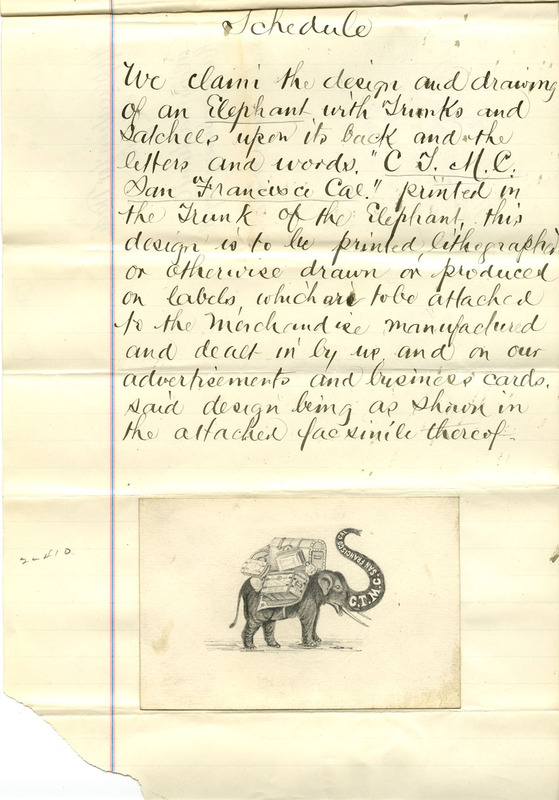 Schedule
We claim the design and drawing
of an Elephant with Trunks and
Satchels upon its back and the
letters and words, "C T. M. C.
San Francisco Cal." printed in
the Trunk of the Elephant, this
design is to be printed, lithographed
or otherwise drawn or produced
on labels, which are to be attached
to the Merchandise manufactured
and dealt in by us, and on our
advertisements and business cards.
said design being as shown in
the attached facsimile thereof.
2410
C.T.M.C. SAN FRANCISCO CAL